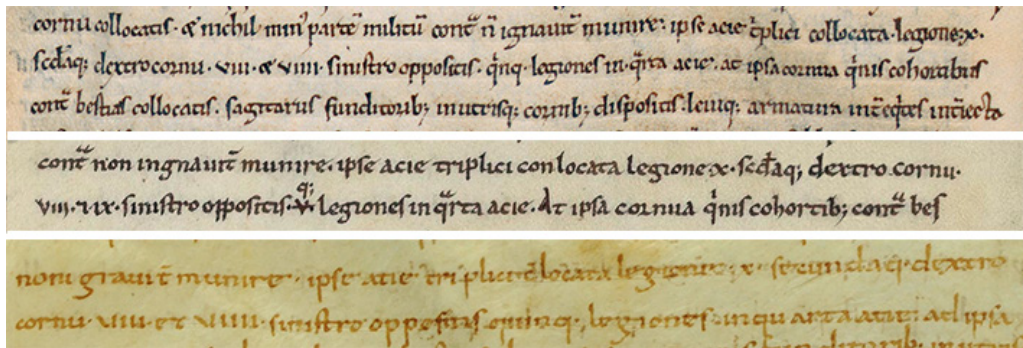 cornu collocatis · & nichil min' partē militū cont̄ n̄ ignauit̄ munire. ipse acie t'plici collocata · legione · x ·
sc̄daq; dextro cornu · viii · & viiii · sinistro oppositis · q'nq · legiones in q̄rta acie · at ipsa cornua q'nis cohortibus
cont̄ bestias collocatis · sagitarus funditorib; in utrisq; cornib; dispositis · leuiq; armatura int̄ eq̄tes int̄iecta
cont̄ non ingnauit̄ munire · ipse acie triplici conlocata legione · x · sc̄daq; dextro cornu ·
viii · & ix · sinistro oppositis · v · q; legiones in q̄rta acie · At ipsa cornua q'nis cohortib; cont̄ bes
non ugrauit̄ munire · ipse acie triplici c̄locata legione · x · secundaq; dextro
cornu · viii · et viiii · sinistro oppositis quinq; legiones in quarta acie ad ipsa